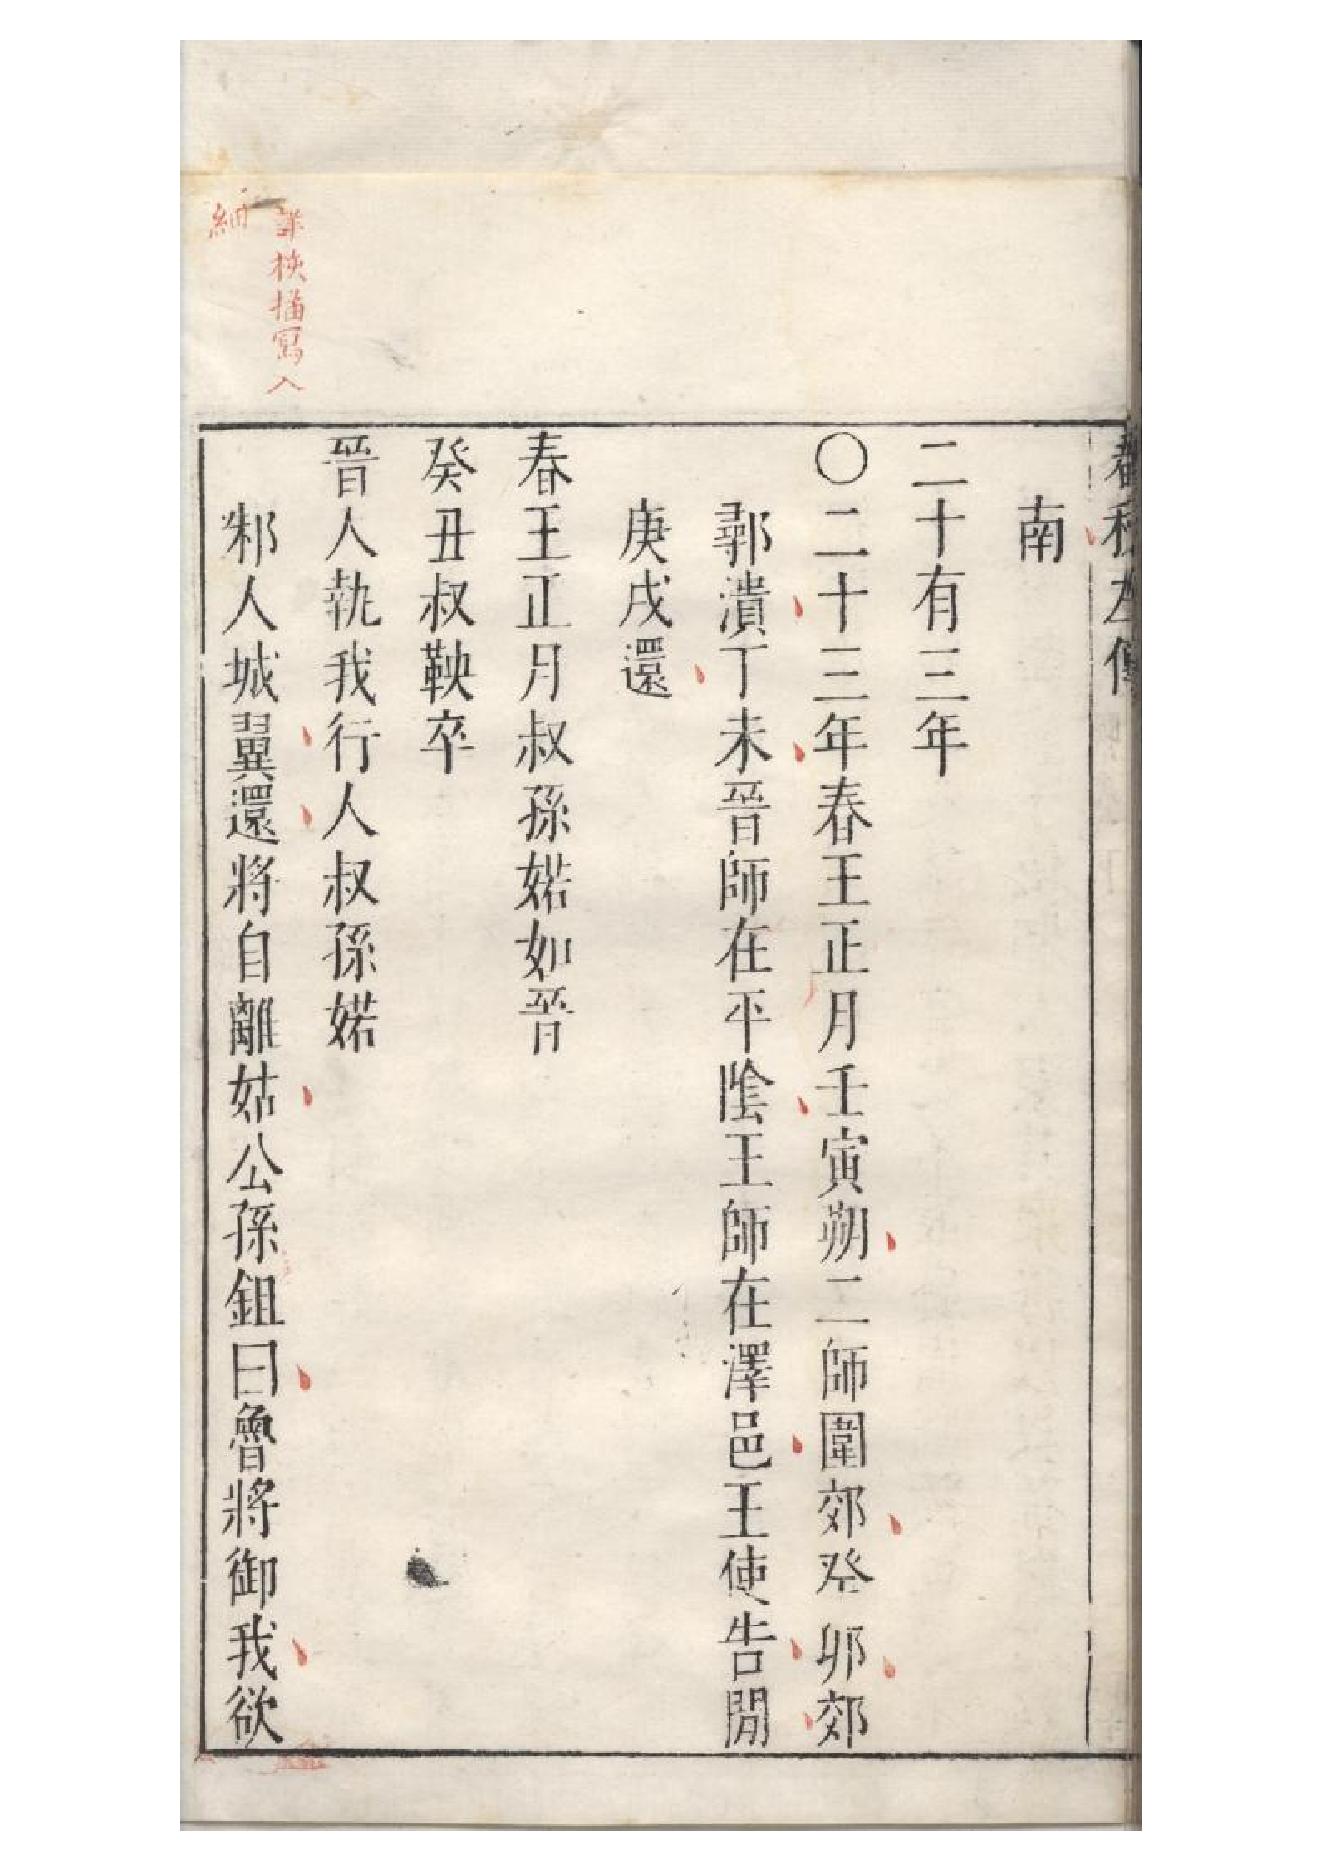 春秋左傳
南
二十有三年
〇二十三年春王正月壬寅朔二師圍郊癸卯郊
鄩潰丁未晉師在平陰王師在澤邑王使告閒
庚戌還
春王正月叔孫婼如晉
癸丑叔鞅卒
晉人執我行人叔孫婼
邾人城翼還將自離姑公孫鉏曰魯將御我欲
描寫入
細